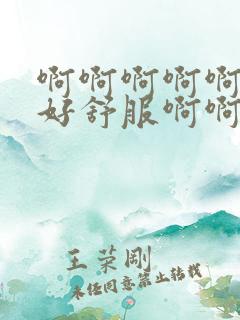 啊啊啊啊啊
好舒服啊啊
王荣刚
未经同意禁止转载